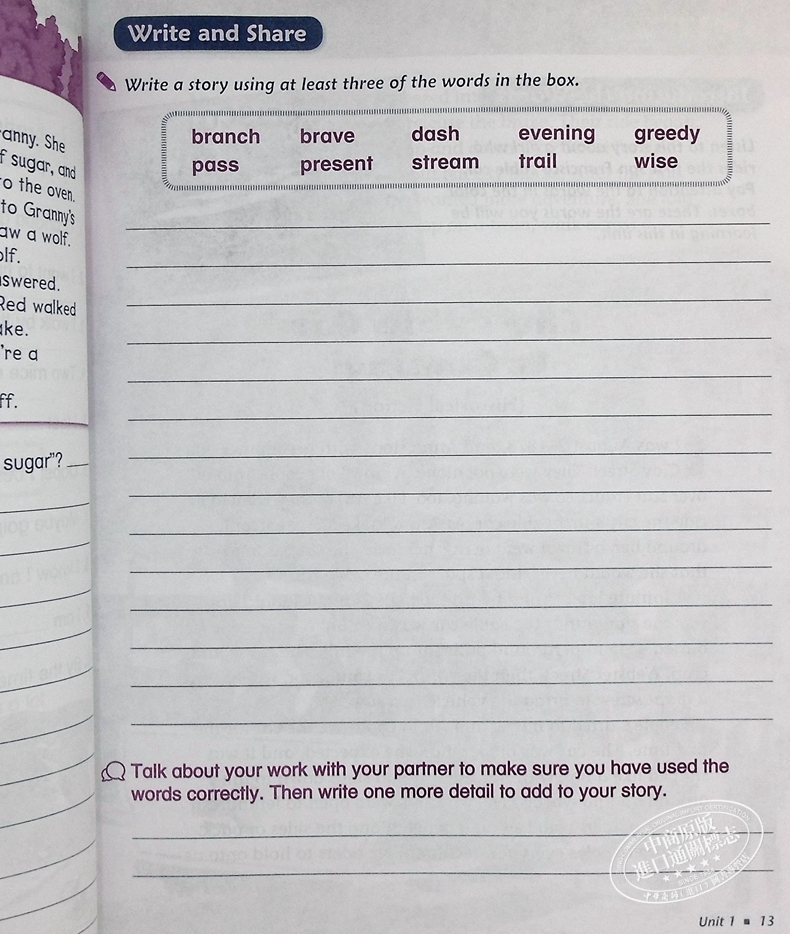 anny. She
f sugar, and
o the oven.
to Granny's
aw a wolf.
olf.
swered.
Red walked
ake.
're a
ff.
sugar"?
Write and Share
Write a story using at least three of the words in the box.
branch brave dash evening greedy
pass present stream trail wise
Talk about your work with your partner to make sure you have used the
words correctly. Then write one more detail to add to your story.
中商原版
進口通關標志
Unit 1 ▪ 13